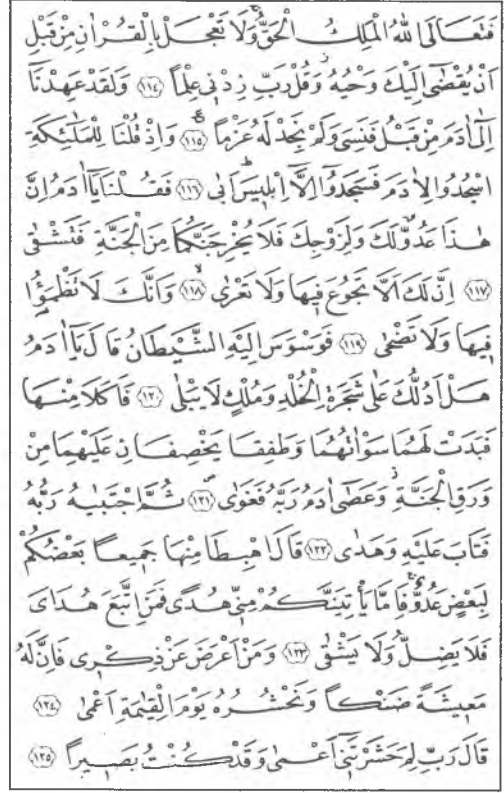 فَتَعَالَى اللّٰهُ الْمَلِكُ الْحَقُّۚ وَلَا تَعْجَلْ بِالْقُرْاٰنِ مِنْ قَبْلِ
اَنْ يُقْضٰٓى اِلَيْكَ وَحْيُهُۘ وَقُلْ رَبِّ زِدْنٖي عِلْمًا ﴿١١٤﴾ وَلَقَدْ عَهِدْنَٓا
اِلٰٓى اٰدَمَ مِنْ قَبْلُ فَنَسِيَ وَلَمْ نَجِدْ لَهُ عَزْمًا ﴿١١٥﴾ وَاِذْ قُلْنَا لِلْمَلٰٓئِكَةِ
اسْجُدُوا لِاٰدَمَ فَسَجَدُٓوا اِلَّٓا اِبْلٖيسَ اَبٰى ﴿١١٦﴾ فَقُلْنَا يَٓا اٰدَمُ اِنَّ
هٰذَا عَدُوٌّ لَكَ وَلِزَوْجِكَ فَلَا يُخْرِجَنَّكُمَا مِنَ الْجَنَّةِ فَتَشْقٰى
﴿١١٧﴾ اِنَّ لَكَ اَلَّا تَجُوعَ فٖيهَا وَلَا تَعْرٰىۙ ﴿١١٨﴾ وَاَنَّكَ لَا تَظْمَؤُ۬ا
فٖيهَا وَلَا تَضْحٰى ﴿١١٩﴾ فَوَسْوَسَ اِلَيْهِ الشَّيْطَانُ قَالَ يَٓا اٰدَمُ
هَلْ اَدُلُّكَ عَلٰى شَجَرَةِ الْخُلْدِ وَمُلْكٍ لَا يَبْلٰى ﴿١٢٠﴾ فَاَكَلَا مِنْهَا
فَبَدَتْ لَهُمَا سَوْاٰتُهُمَا وَطَفِقَا يَخْصِفَانِ عَلَيْهِمَا مِنْ
وَرَقِ الْجَنَّةِؗ وَعَصٰٓى اٰدَمُ رَبَّهُ فَغَوٰىۖ ﴿١٢١﴾ ثُمَّ اجْتَبٰيهُ رَبُّهُ
فَتَابَ عَلَيْهِ وَهَدٰى ﴿١٢٢﴾ قَالَ اهْبِطَا مِنْهَا جَمٖيعًا بَعْضُكُمْ
لِبَعْضٍ عَدُوٌّۚ فَاِمَّا يَأْتِيَنَّكُمْ مِنّٖي هُدًى فَمَنِ اتَّبَعَ هُدَايَ
فَلَا يَضِلُّ وَلَا يَشْقٰى ﴿١٢٣﴾ وَمَنْ اَعْرَضَ عَنْ ذِكْرٖي فَاِنَّ لَهُ
مَعٖيشَةً ضَنْكًا وَنَحْشُرُهُ يَوْمَ الْقِيٰمَةِ اَعْمٰى ﴿١٢٤﴾
قَالَ رَبِّ لِمَ حَشَرْتَنٖٓي اَعْمٰى وَقَدْ كُنْتُ بَصٖيرًا ﴿١٢٥﴾